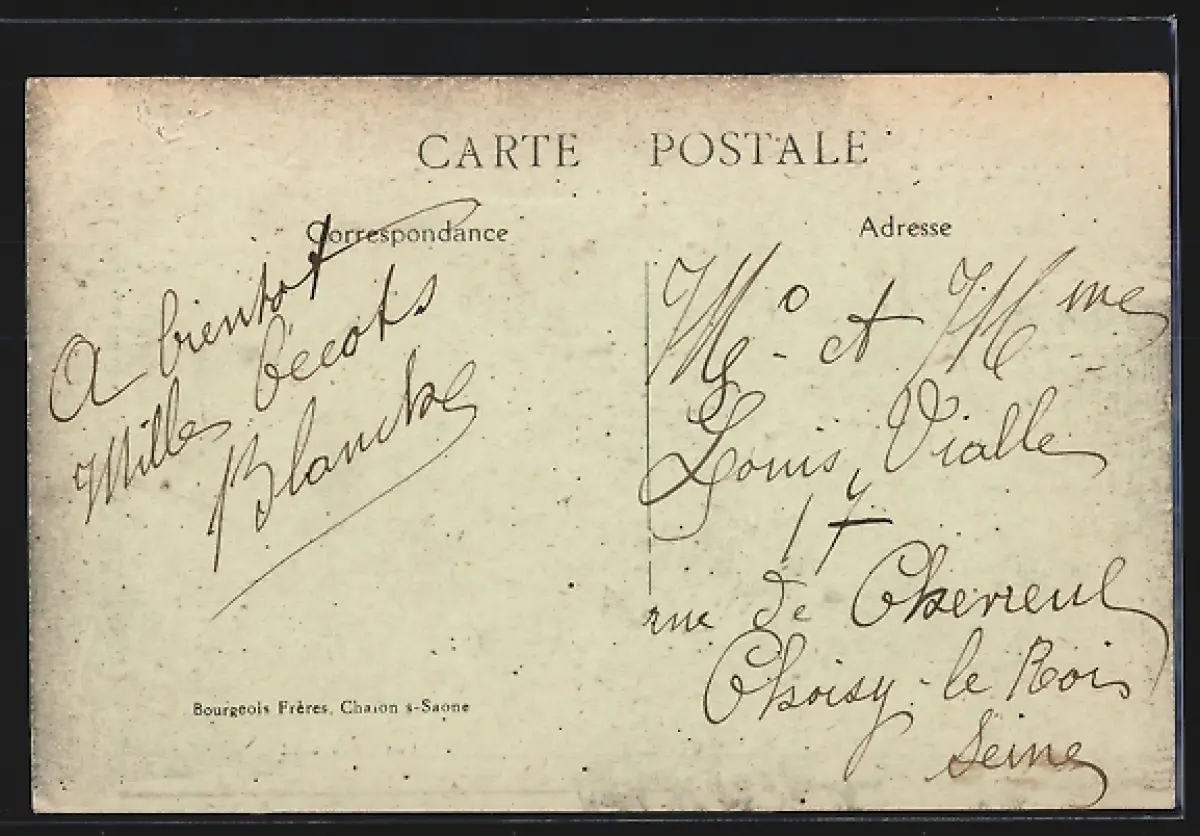 CARTE POSTALE
Correspondance
A bientot
Milles bécots
Blanche
Bourgeois Frères, Chalon s-Saone
Adresse
et Mme
Louis Vialle
17
rue de Chevreul
Choisy-le Roi
Seine